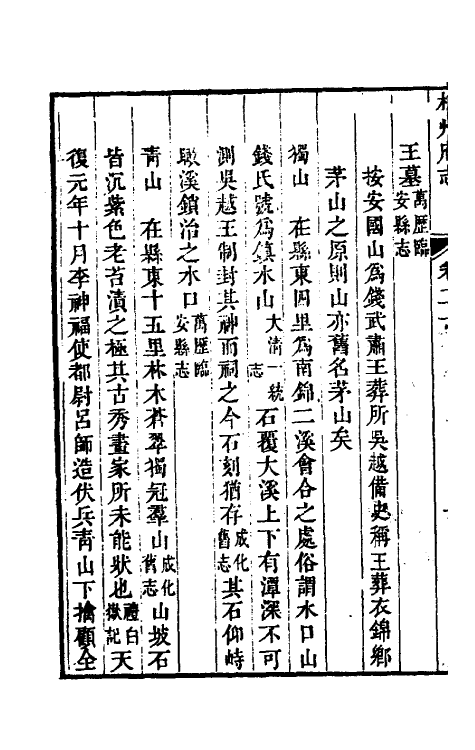 杭州府志
卷二十
王墓萬歷臨安縣志
按安國山為錢武肅王葬所吳越備史稱王葬衣錦鄉
茅山之原則山亦舊名茅山矣
獨山　在縣東四里為南錦二溪會合之處俗謂水口山
錢氏號為鎮水山大清一統志石覆大溪上下有潭深不可
測吳越王制封其神而祠之今石刻猶存成化舊志其石仰峙
瞰溪鎖治之水口萬歷臨安縣志
青山　在縣東十五里林木蒼翠獨冠羣山成化舊志山坡石
皆沉紫色老苔漬之極其古秀畫家所未能狀也禮白嶽記天
復元年十月李神福使都尉呂師造伏兵青山下擒顧全